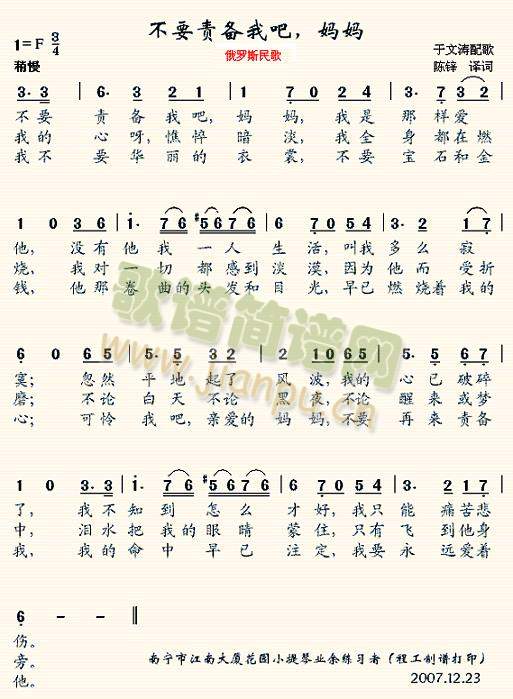 不要责备我吧，妈妈
1=F 3/4
俄罗斯民歌
于文涛配歌
稍慢
陈锌 译词
3·3 | 6· 5 3 2 | 1 7 0 5 4 | 3· 7 3 2 |
不要 责备我吧，妈妈，我是那样爱
我的心呀，憔悴暗淡，我全身都在燃
我不要华丽的衣裳，不要宝石和金
1 0 3 6 | 1· 7 6 #5 6 7 6 | 6 7 0 5 4 | 3· 2 1 7 |
他，没有他我一人生活，叫我多么寂
烧，我对一切都感到淡漠，因为他而受折
钱，他那卷曲的头发和目光，早已燃烧着我的
6 0 6 5 | 5· 5 3 2 | 2 1 0 6 5 | 5· 5 6 7 |
寞；忽然平地起了风波，我的心已破碎
磨；不论白天不论黑夜，不论醒来或梦
心；可怜我吧，亲爱的妈妈，不要再来责备
1 0 3·3 | 1· 7 6 #5 6 7 6 | 6 7 0 5 4 | 3· 2 1 7 |
了，我不知到怎么才好，我只能痛苦悲
中，泪水把我的眼睛蒙住，只有飞到他身
我，我的命中早已注定，我要永远爱着
6 - - ‖
伤。
旁。
他。
南宁市江南大厦花园小提琴业余练习者（程工制谱打印）
2007.12.23
歌谱简谱网
www.jianpu.cn